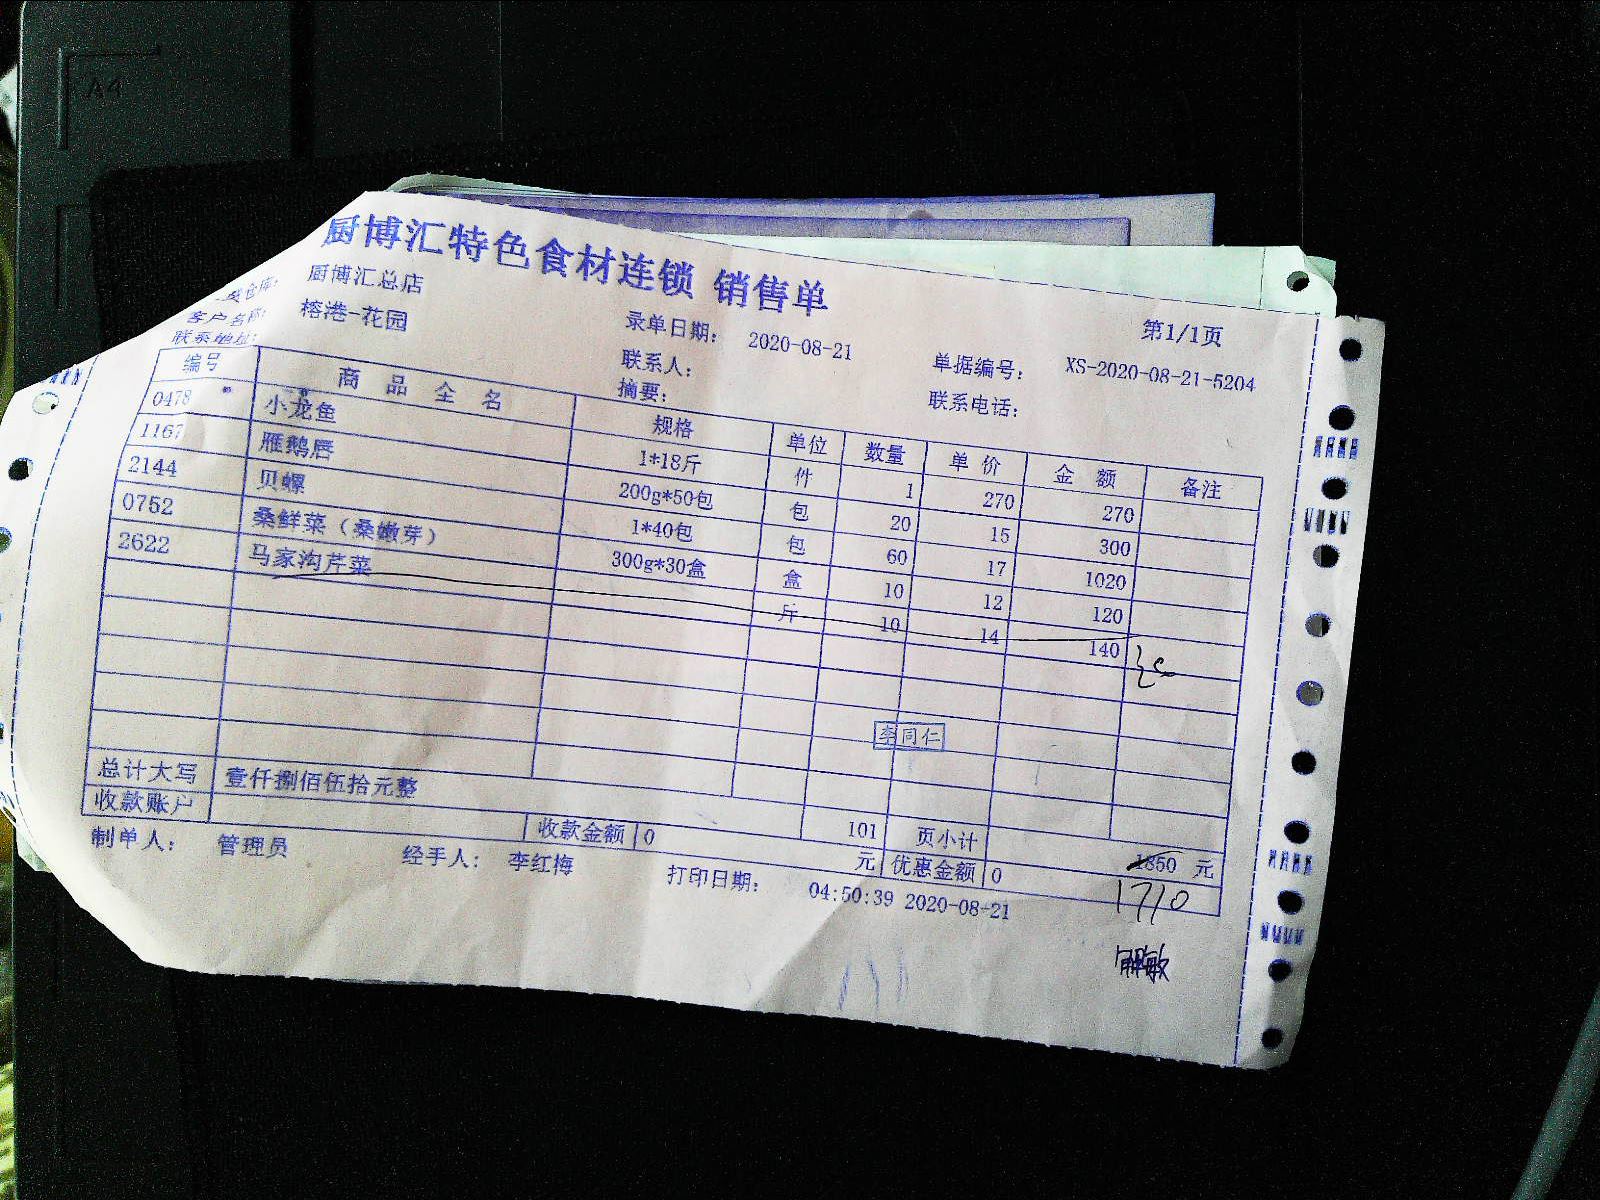 A4
厨博汇特色食材连锁 销售单
第1/1页
仓库： 厨博汇总店 录单日期： 2020-08-21 单据编号： XS-2020-08-21-5204
客户名称： 榕港-花园 联系人： 联系电话：
联系地址： 摘要：
编号 商品全名 规格 单位 数量 单价 金额 备注
0478 小龙鱼 1*18斤 件 1 270 270
1167 雁鹅唇 200g*50包 包 20 15 300
2144 贝螺 1*40包 包 60 17 1020
0752 桑鲜菜（桑嫩芽） 300g*30盒 盒 10 12 120
2622 马家沟芹菜 斤 10 14 140
李同仁
总计大写 壹仟捌佰伍拾元整 101 页小计 1850 元
收款账户 收款金额 0 元 优惠金额 0 1710
制单人： 管理员 经手人： 李红梅 打印日期： 04:50:39 2020-08-21